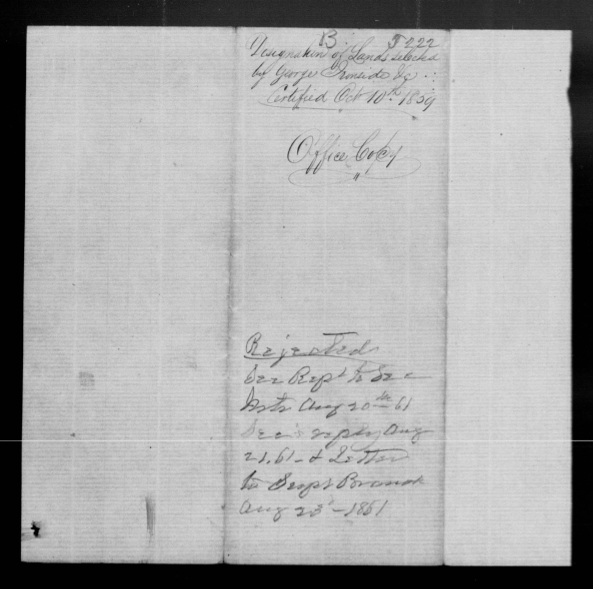 B. J 222
Designations of Lands selected
by George Ironside &c
Certified Oct 10th 1859
Office Copy
"
Rejected
See Rept to Sec
Aug 20th 61
Sec's reply Aug
21. 61 - & Letter
to Supt Branch
Aug 23d - 1861